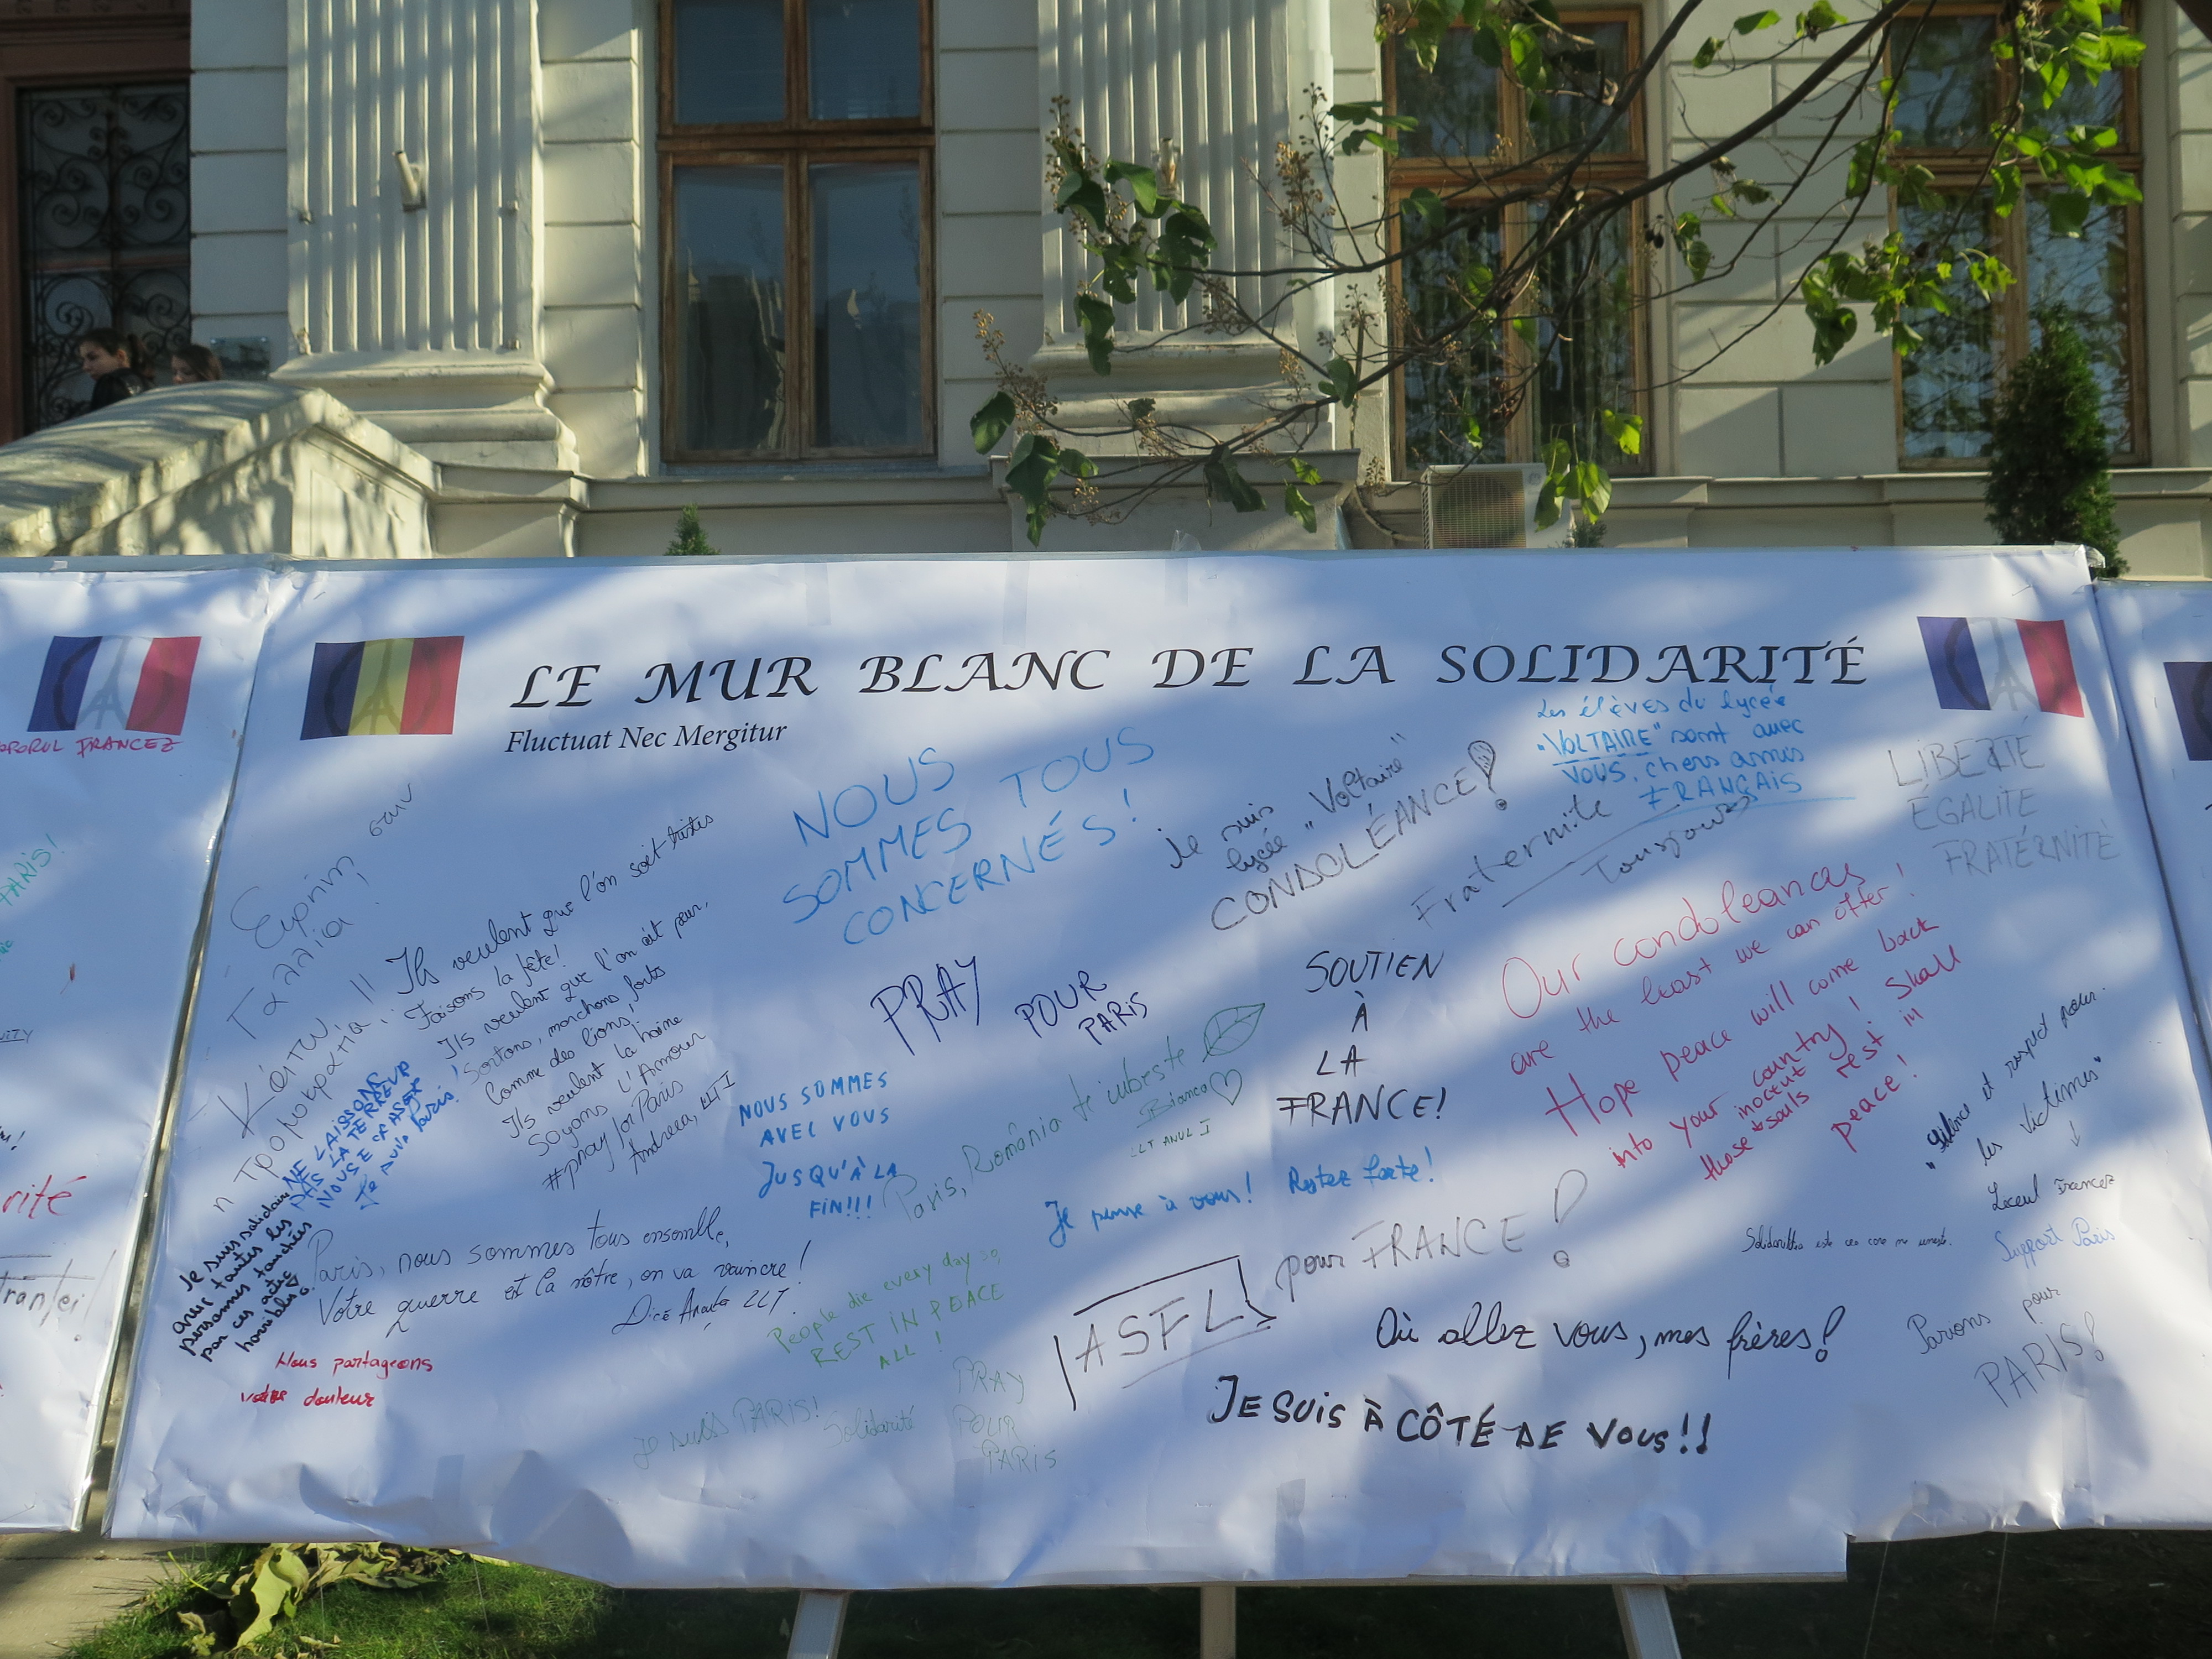 LE MUR BLANC DE LA SOLIDARITÉ
Fluctuat Nec Mergitur
FRANCEZ
PARIS!
rité
Ειρήνη στην
Γαλλία!
Κάτω
η τρομοκρατία!!
Ils veulent que l'on soit tristes
Faisons la fête!
Ils veulent que l'on ait peur,
Sortons, marchons, forts
Comme des lions,
Ils veulent la haine
Soyons L'Amour
#pray for Paris
Andreea, LLT I
NE LAISSONS
PAS LA TERREUR
NOUS ECRASER
Je suis Paris!
Je suis solidaire
avec toutes les
personnes touchées
par ces actes
horribles
Paris, nous sommes tous ensemble,
Votre guerre est la nôtre, on va vaincre!
LLT.
Nous partageons
votre douleur
NOUS
SOMMES TOUS
CONCERNÉS!
PRAY
POUR
PARIS
NOUS SOMMES
AVEC VOUS
JUSQU'À LA
FIN!!!
Paris, România te iubește
Bianca
LLT ANUL I
People die every day so,
REST IN PEACE
ALL!
Je suis PARIS!
Solidarité
PRAY
POUR
PARIS
Je suis
lycée "Voltaire"
CONDOLÉANCE!
Les élèves du lycée
"VOLTAIRE" sont avec
VOUS, chers amis
FRANÇAIS
Fraternite
Toujours
LIBERTÉ
ÉGALITÉ
FRATÉRNITÉ
SOUTIEN
À
LA
FRANCE!
Our condoleances
are the least we can offer!
Hope peace will come back
into your country! Shall
those inocent souls rest in
peace!
Je pense à vous! Restez forte!
ASFL pour FRANCE!
Où allez vous, mes frères!
JE SUIS À CÔTÉ DE VOUS!!
"Silence et respect pour
les victimes"
Liceul Francez
Support Paris
Solidaritatea este cea care ne unește.
pour
PARIS!